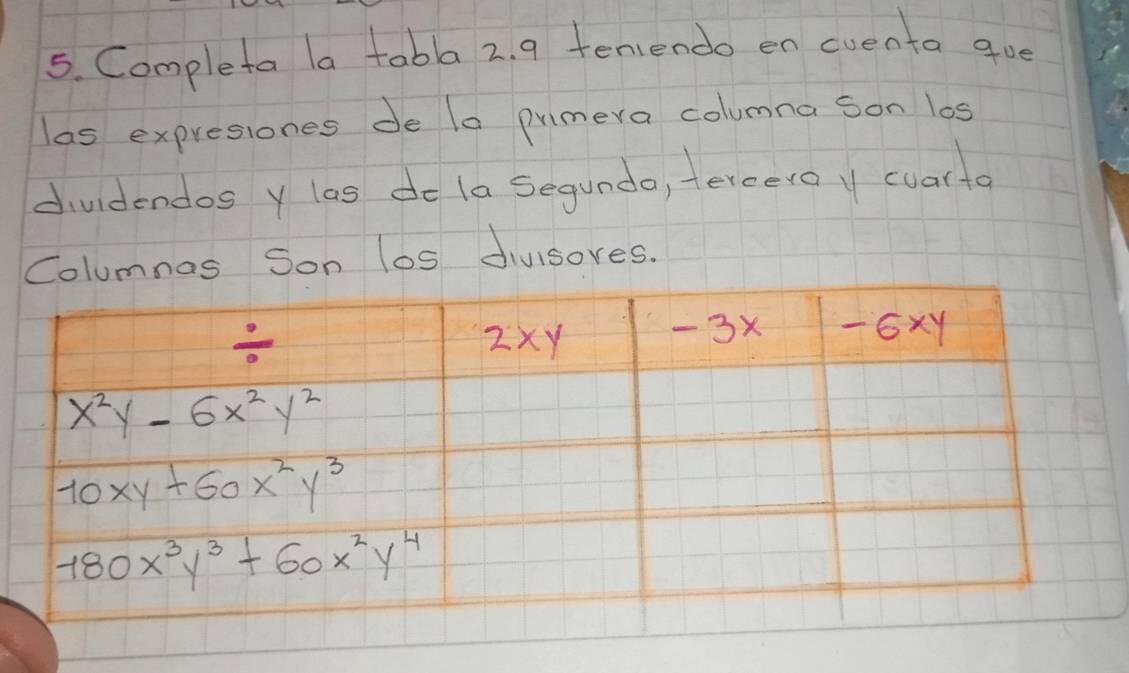 5. Completa la tabla 2.9 teniendo en cuenta que
las expresiones de la primera columna son los
dividendos y las de la Segunda, tercera y cuarta
Columnas Son los divisores.
÷ 2xy -3x -6xy
x²y - 6x²y²
-10xy + 60x²y³
-180x³y³ + 60x²y⁴